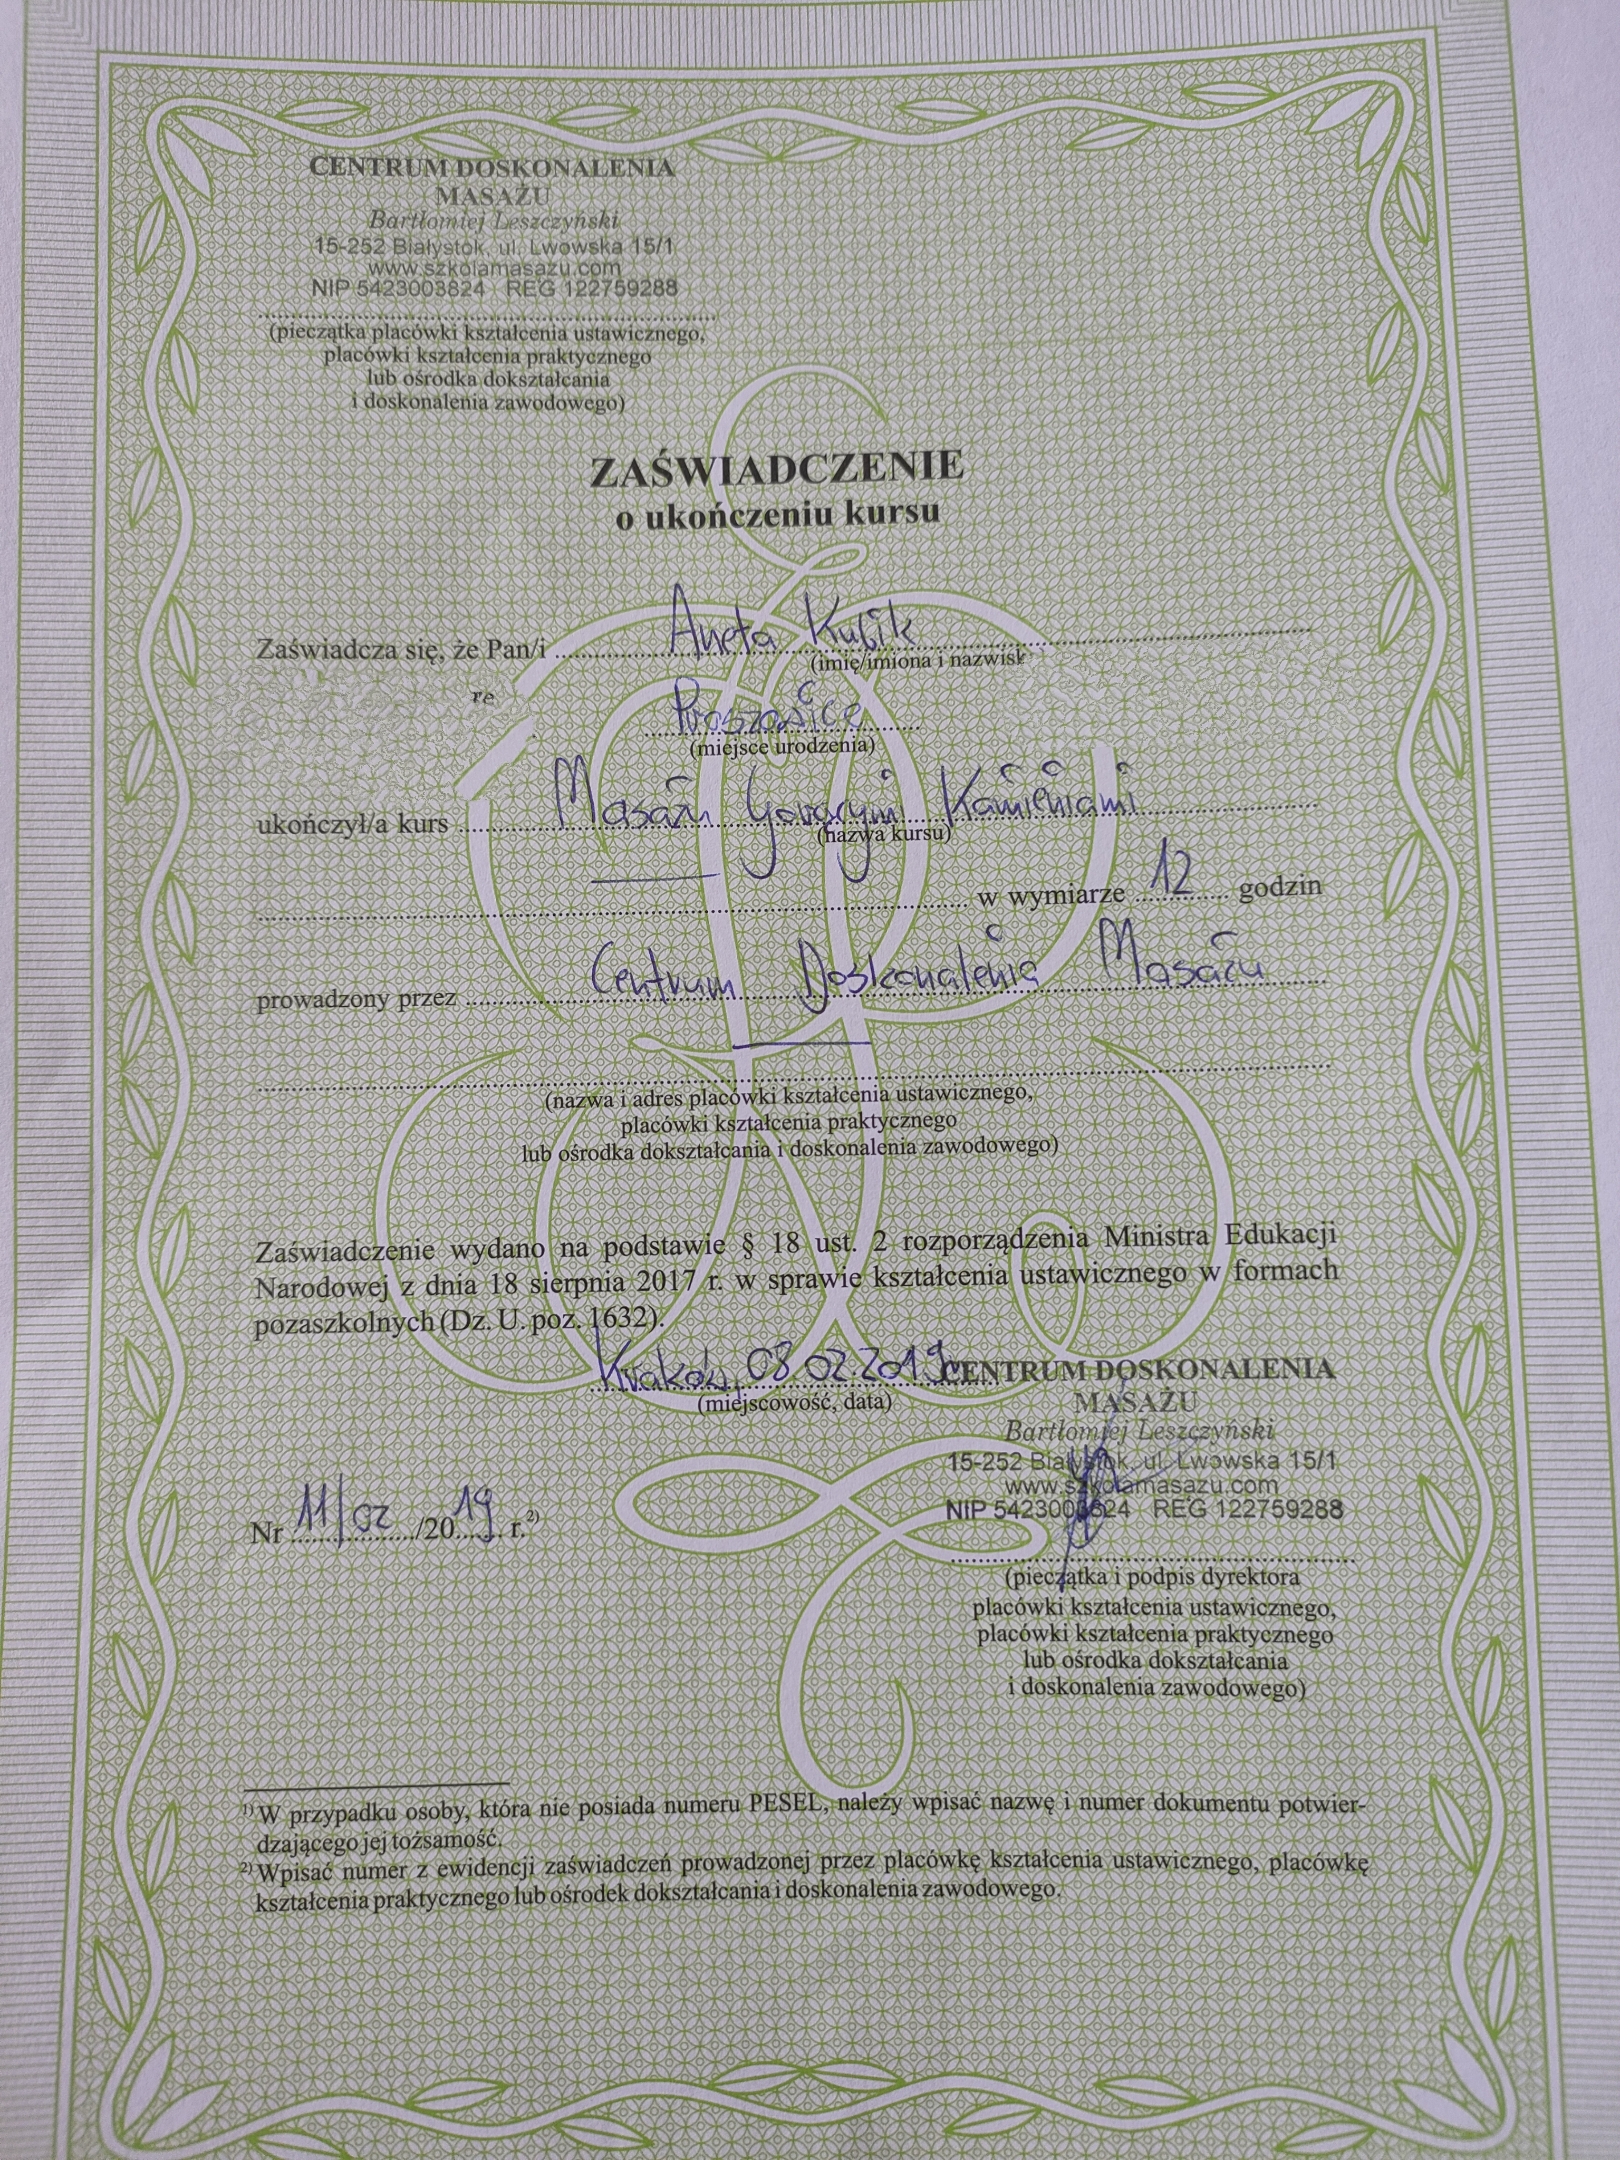 CENTRUM DOSKONALENIA
MASAŻU
Bartłomiej Leszczyński
15-252 Białystok, ul. Lwowska 15/1
www.szkolamasazu.com
NIP 5423003824 REG 122759288
(pieczątka placówki kształcenia ustawicznego,
placówki kształcenia praktycznego
lub ośrodka dokształcania
i doskonalenia zawodowego)
ZAŚWIADCZENIE
o ukończeniu kursu
Zaświadcza się, że Pan/i Aneta Kubik
(imię/imiona i nazwisk
re Proszowice
(miejsce urodzenia)
ukończył/a kurs Masażu Gorącymi Kamieniami
(nazwa kursu)
w wymiarze 12 godzin
prowadzony przez Centrum Doskonalenia Masażu
(nazwa i adres placówki kształcenia ustawicznego,
placówki kształcenia praktycznego
lub ośrodka dokształcania i doskonalenia zawodowego)
Zaświadczenie wydano na podstawie § 18 ust. 2 rozporządzenia Ministra Edukacji
Narodowej z dnia 18 sierpnia 2017 r. w sprawie kształcenia ustawicznego w formach
pozaszkolnych (Dz. U. poz. 1632).
Kraków, 03.02.2019r.
(miejscowość, data)
CENTRUM DOSKONALENIA
MASAŻU
Bartłomiej Leszczyński
15-252 Białystok, ul. Lwowska 15/1
www.szkolamasazu.com
NIP 5423003824 REG 122759288
Nr 11/02/2019 r.²⁾
(pieczątka i podpis dyrektora
placówki kształcenia ustawicznego,
placówki kształcenia praktycznego
lub ośrodka dokształcania
i doskonalenia zawodowego)
¹⁾ W przypadku osoby, która nie posiada numeru PESEL, należy wpisać nazwę i numer dokumentu potwier-
dzającego jej tożsamość.
²⁾ Wpisać numer z ewidencji zaświadczeń prowadzonej przez placówkę kształcenia ustawicznego, placówkę
kształcenia praktycznego lub ośrodek dokształcania i doskonalenia zawodowego.